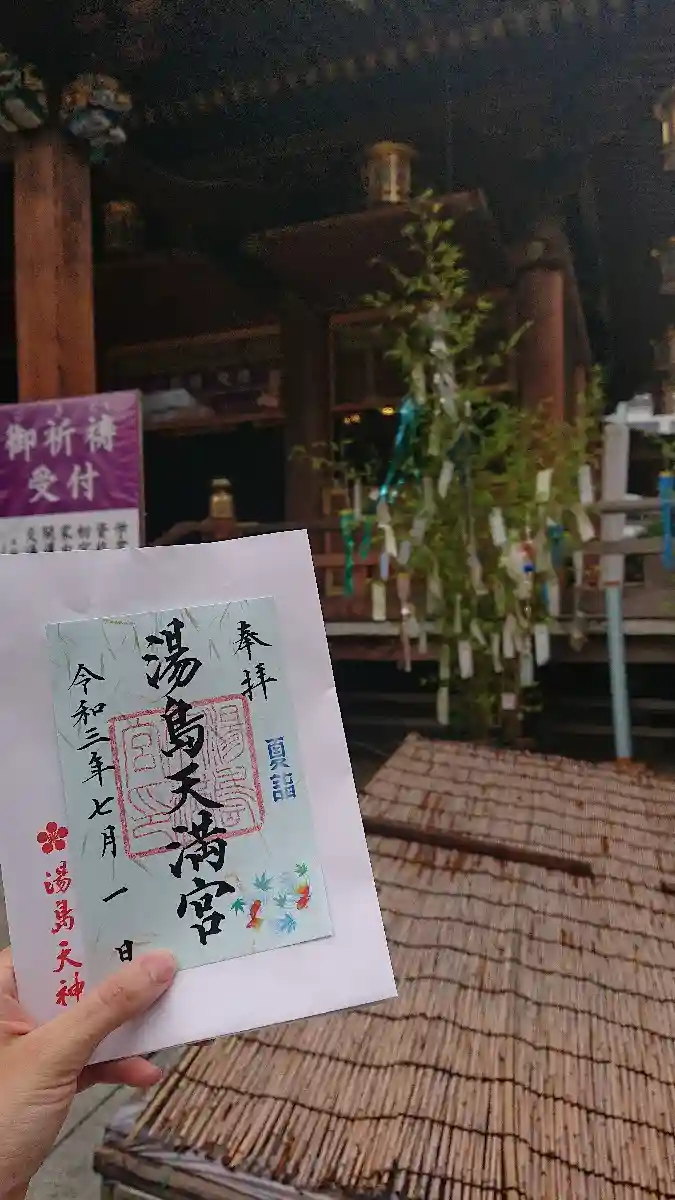 御祈禱
受付
奉拝
湯島天満宮
夏詣
令和三年七月一日
湯島天神